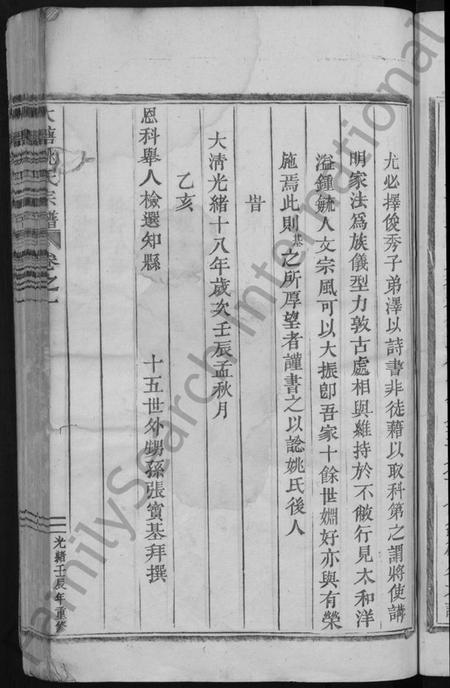 尤必擇俊秀子弟澤以詩書非徒藉以取科第之謂將使講
明家法爲族儀型力敦古處相與維持於不敝行見太和洋
溢鍾毓人文宗風可以大振卽吾家十餘世婣好亦與有榮
施焉此則基之所厚望者謹書之以諗姚氏後人
旹
大淸光緒十八年歲次壬辰孟秋月
乙亥
恩科舉人檢選知縣 十五世外甥孫張賓基拜撰
姚氏宗譜 卷之一
光緒壬辰年重修
FamilySearch International